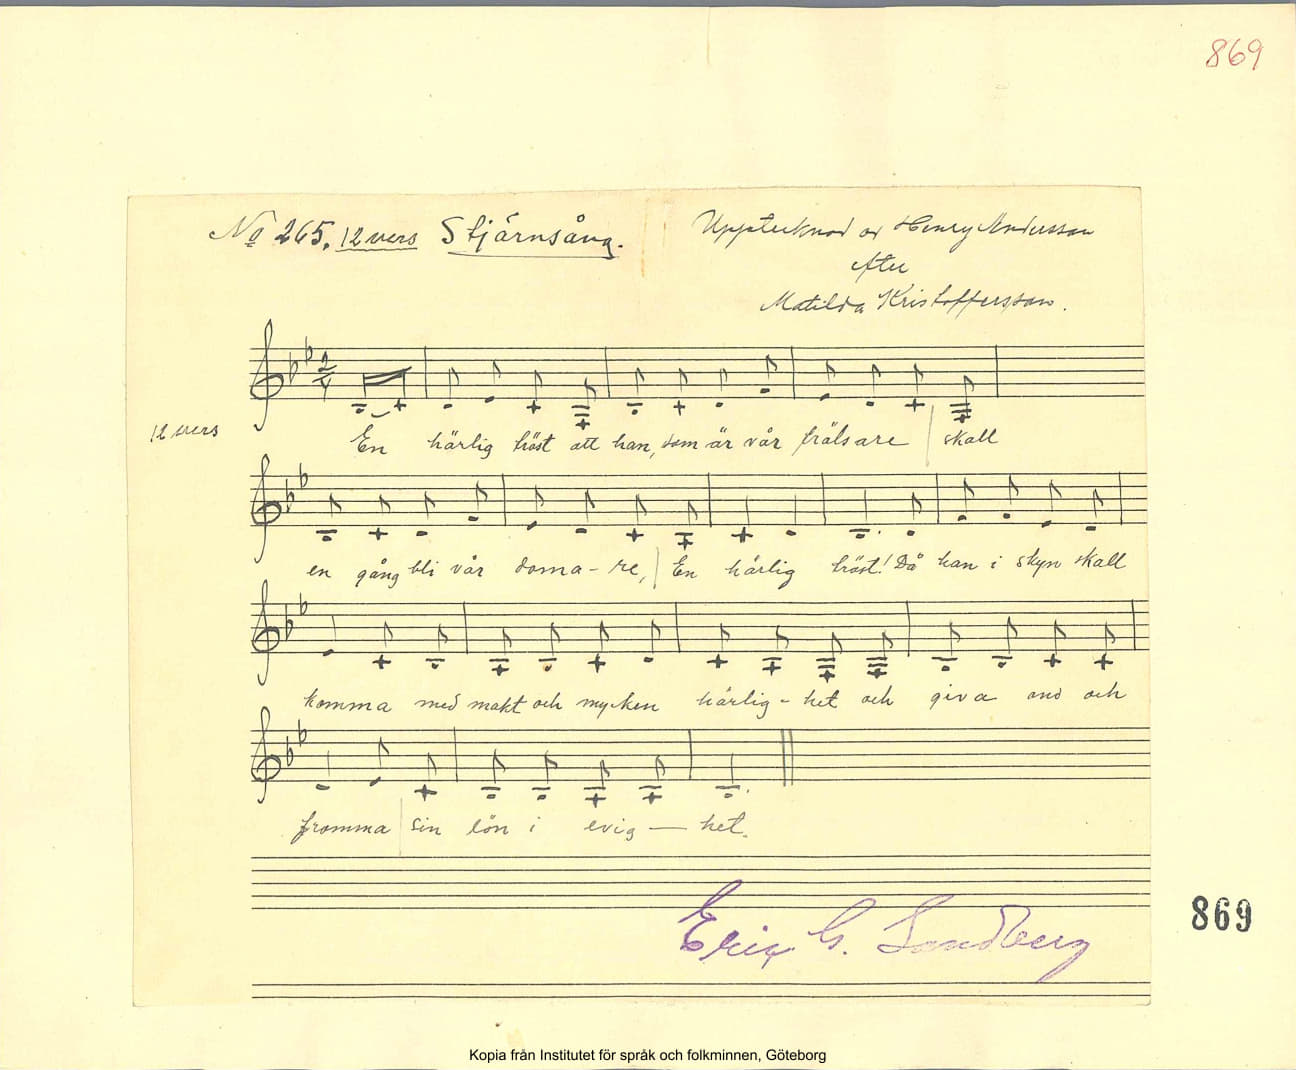 869
No 265. 12 vers Stjärnsång.
Upptecknad av Henry Andersson
efter
Matilda Kristoffersson.
2
4
12 vers
En härlig tröst att han, som är vår frälsare skall
en gång bli vår doma- re, En härlig tröst! Då han i skyn skall
komma med makt och mycken härlig- het och giva and och
fromma sin lön i evig — het.
Eric G. Sandberg
869
Kopia från Institutet för språk och folkminnen, Göteborg